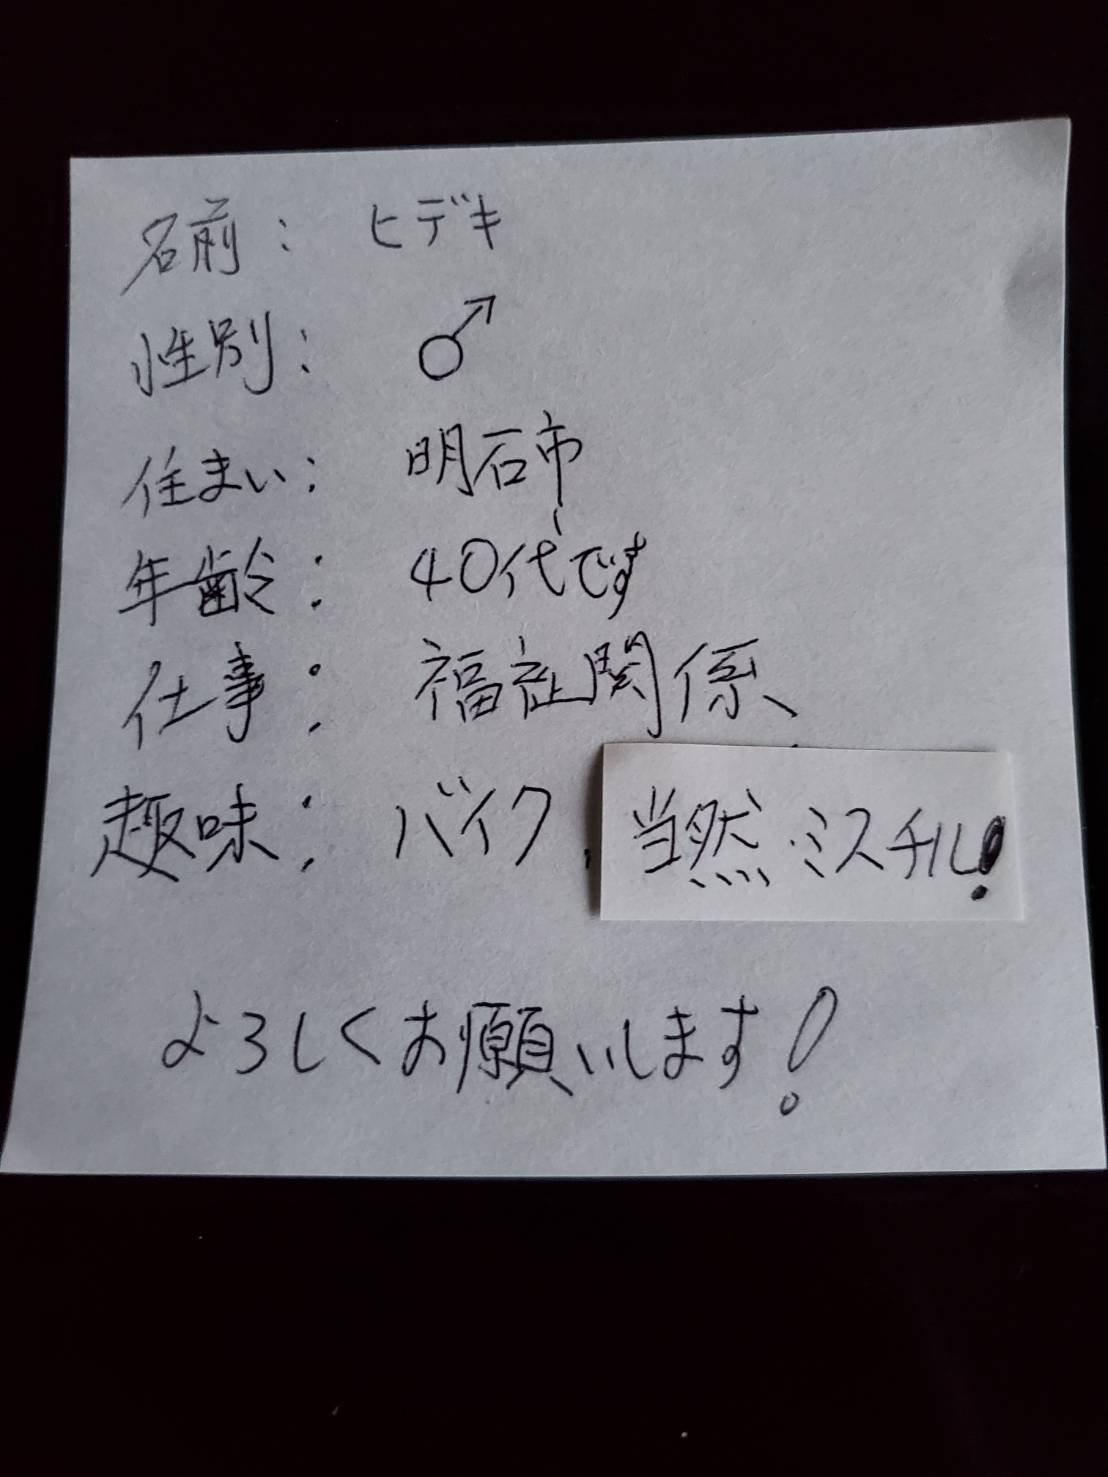 名前： ヒデキ
性別： ♂
住まい： 明石市
年齢： 40代です
仕事： 福祉関係、
趣味： バイク、当然ミスチル!
よろしくお願いします!